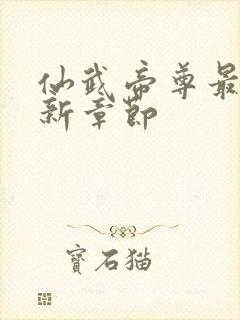 仙武帝尊最
新章节
寶石猫